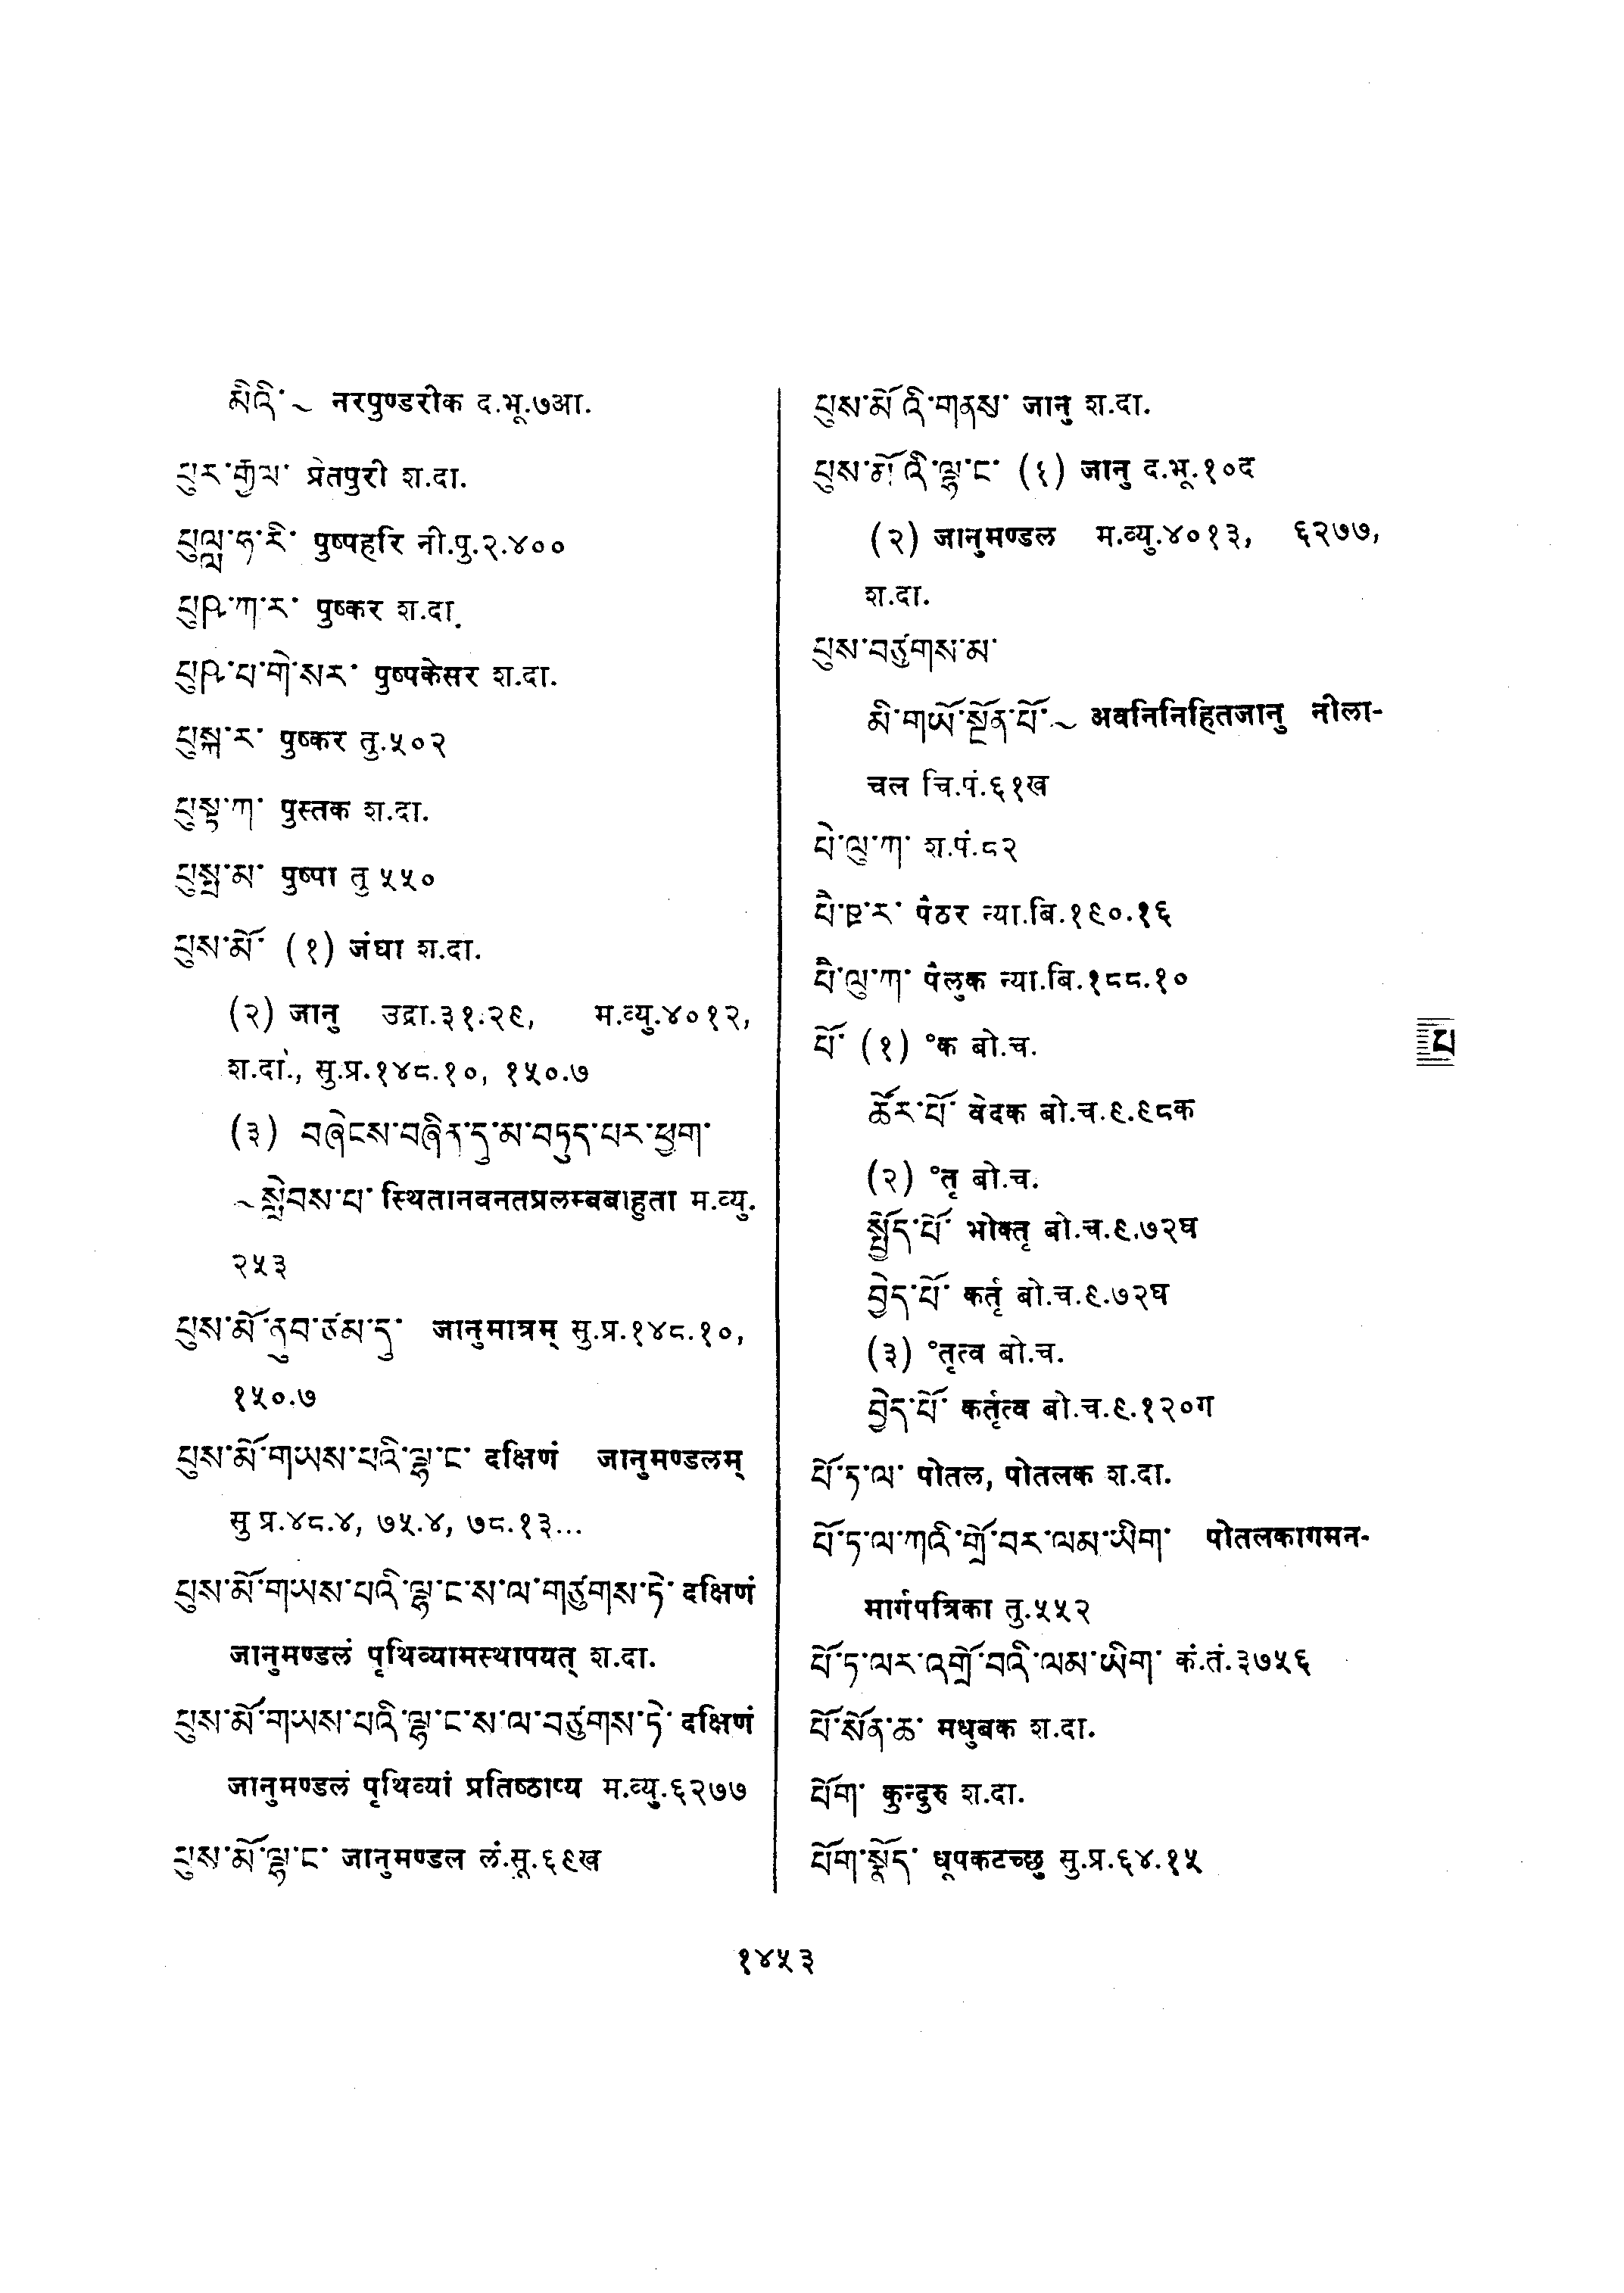 མིའི་ ~ नरपुण्डरीक द.भू.७आ.
པུར་རྒྱལ་ प्रेतपुरी श.दा.
པུལླ་ཧ་རི་ पुष्पहरि नी.पु.२.४००
པུཥི་ཀ་ར་ पुष्कर श.दा.
པུཥི་པ་གེ་སར་ पुष्पकेसर श.दा.
པུསྐ་ར་ पुष्कर तु.५०२
པུསྟ་ཀ་ पुस्तक श.दा.
པུསྤ་མ་ पुष्पा तु ५५०
པུས་མོ་ (१) जंघा श.दा.
(२) जानु उद्रा.३१.२९, म.व्यु.४०१२,
श.दा., सु.प्र.१४८.१०, १५०.७
(३) བཞེངས་བཞིན་དུ་མ་བཏུད་པར་ཕྱག་
~ སླེབས་པ་ स्थितानवनतप्रलम्बबाहुता म.व्यु.
२५३
པུས་མོ་ནུབ་ཙམ་དུ་ जानुमात्रम् सु.प्र.१४८.१०,
१५०.७
པུས་མོ་གཡས་པའི་ལྷ་ང་ दक्षिणं जानुमण्डलम्
सु प्र.४८.४, ७५.४, ७८.१३...
པུས་མོ་གཡས་པའི་ལྷ་ང་ས་ལ་གཙུགས་ཏེ་ दक्षिणं
जानुमण्डलं पृथिव्यामस्थापयत् श.दा.
པུས་མོ་གཡས་པའི་ལྷ་ང་ས་ལ་བཙུགས་ཏེ་ दक्षिणं
जानुमण्डलं पृथिव्यां प्रतिष्ठाप्य म.व्यु.६२७७
པུས་མོ་ལྷ་ང་ जानुमण्डल लं.सू.६९ख
པུས་མོའི་གནས་ जानु श.दा.
པུས་མོའི་ལྷ་ང་ (१) जानु द.भू.१०द
(२) जानुमण्डल म.व्यु.४०१३, ६२७७,
श.दा.
པུས་བཙུགས་མ་
མི་གཡོ་སྔོན་པོ་ ~ अवनिनिहितजानु नीला-
चल चि.पं.६१ख
པེ་ལུ་ཀ་ श.पं.८२
པཻ་ཋ་ར་ पैठर न्या.बि.१९०.१६
པཻ་ལུ་ཀ་ पैलुक न्या.बि.१८८.१०
པོ་ (१) °क बो.च.
པ
ཚོར་པོ་ वेदक बो.च.९.९८क
(२) °तृ बो.च.
སྤྱོད་པོ་ भोक्तृ बो.च.९.७२घ
བྱེད་པོ་ कर्तृ बो.च.९.७२घ
(३) °तृत्व बो.च.
བྱེད་པོ་ कर्तृत्व बो.च.९.१२०ग
པོ་ཏ་ལ་ पोतल, पोतलक श.दा.
པོ་ཏ་ལ་ཀའི་གྲོ་བར་ལམ་ཡིག་ पोतलकागमन-
मार्गपत्रिका तु.५५२
པོ་ཏ་ལར་འགྲོ་བའི་ལམ་ཡིག་ कं.तं.३७५६
པོ་སོན་ཆ་ मधुबक श.दा.
པོག་ कुन्दुरु श.दा.
པོག་སྣོད་ धूपकटच्छु सु.प्र.६४.१५
१४५३